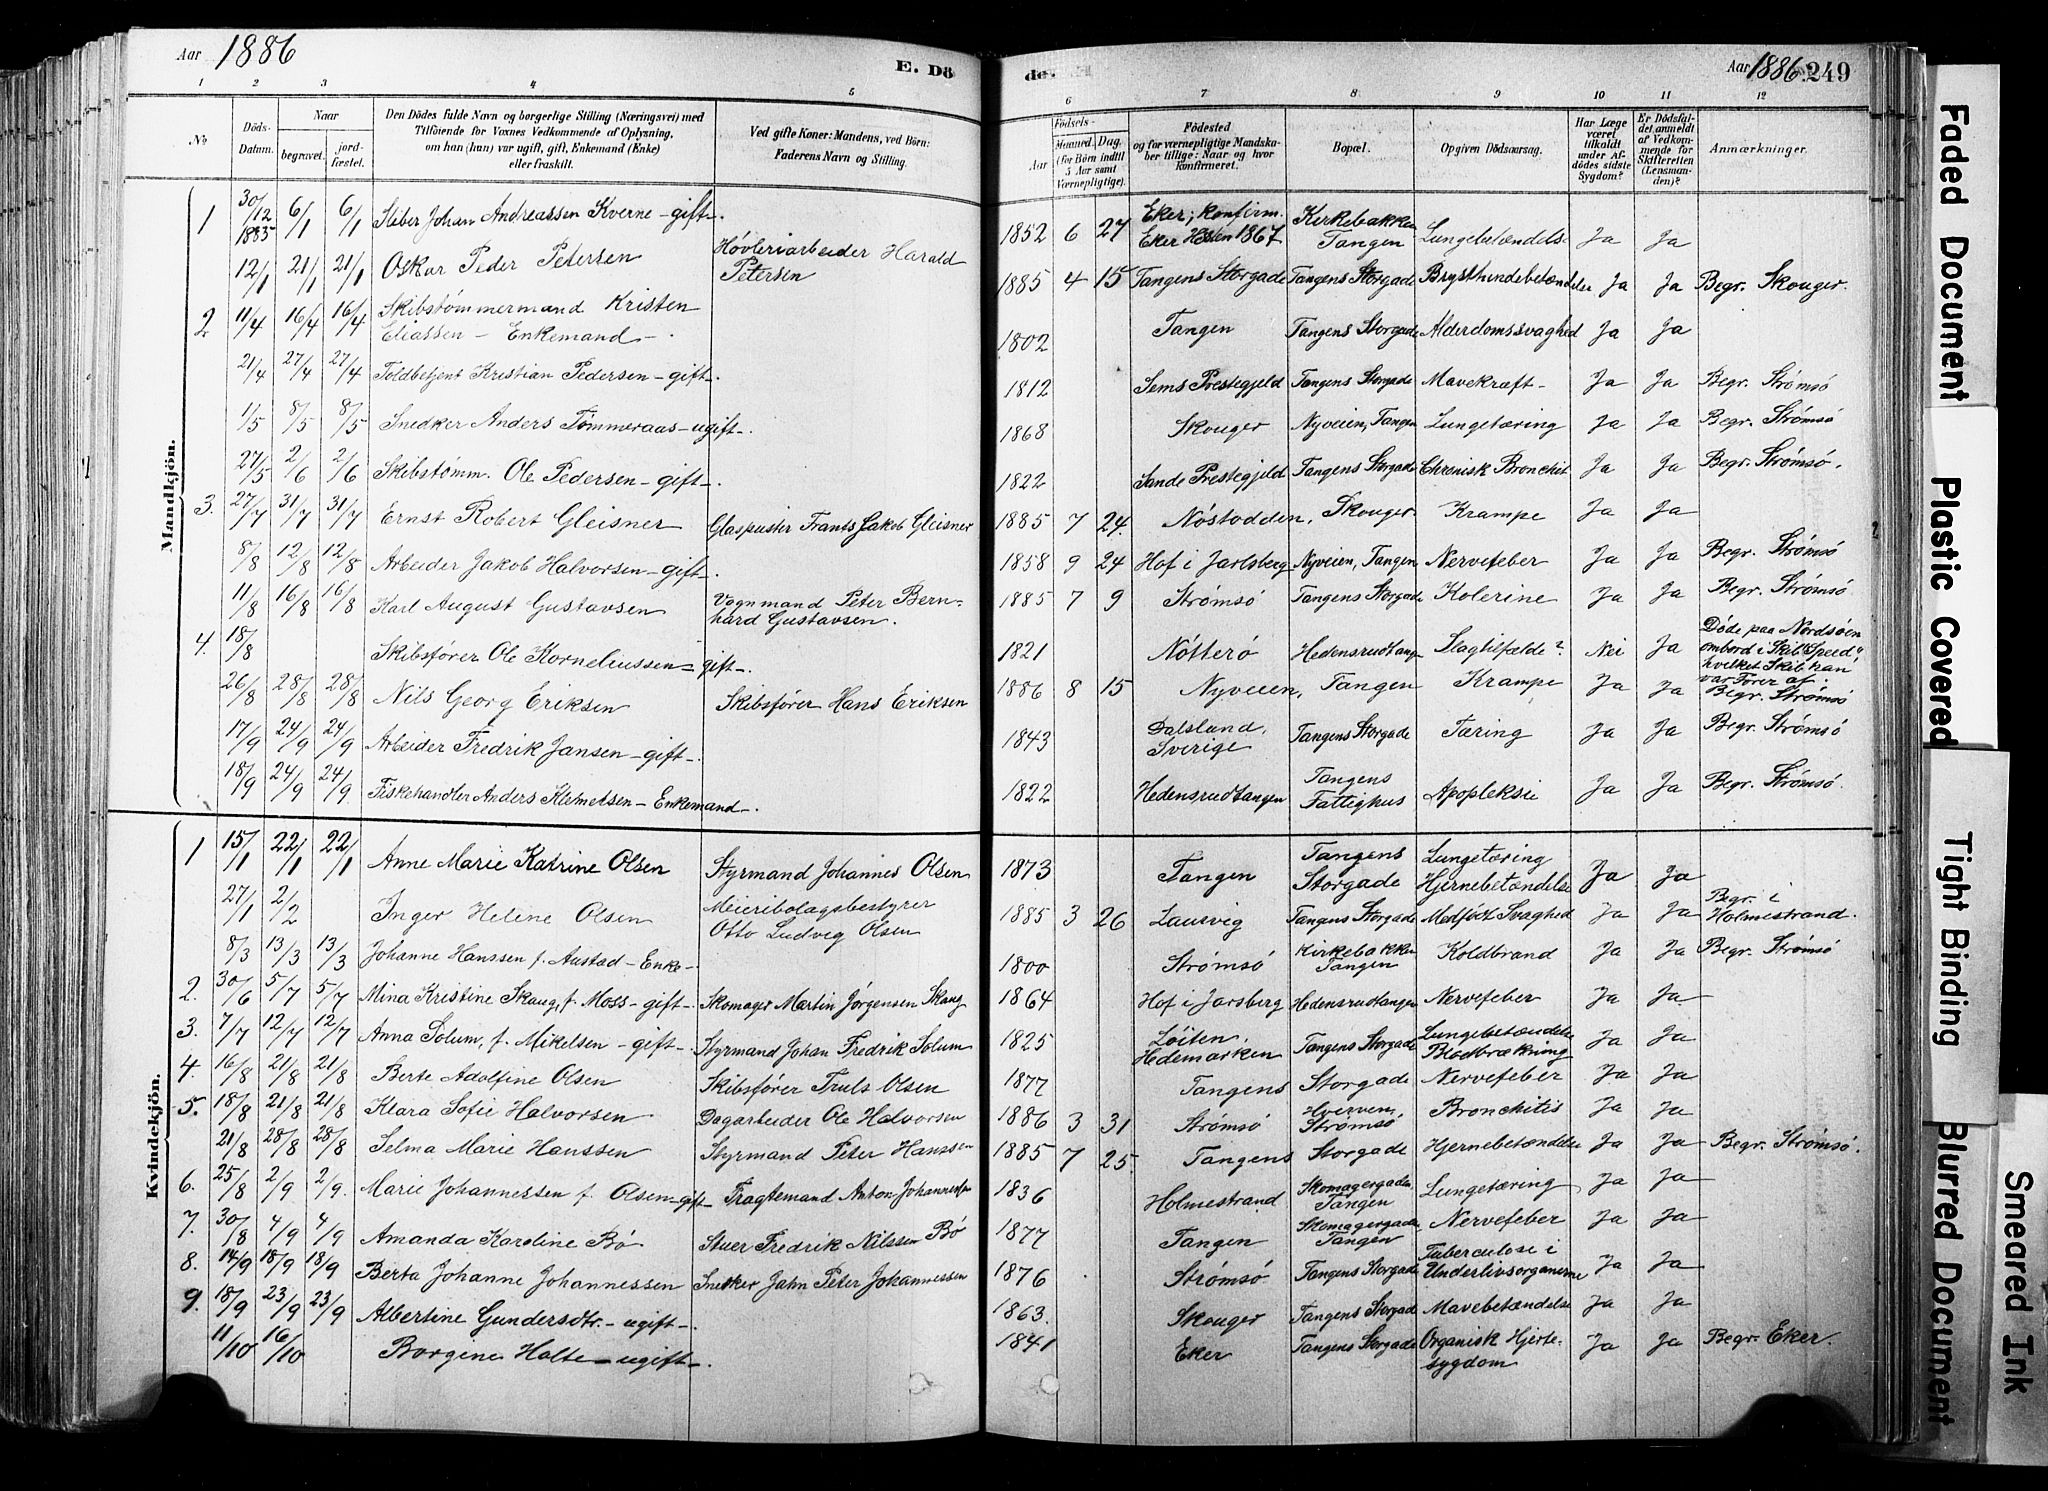 Aar 1886
E. Dö
de.
Aar 1886. 249
1 2 3 4 5 6 7 8 9 10 11 12
No
Döds-Datum.
Naar
begravet. jordfæstet.
Den Dödes fulde Navn og borgerlige Stilling (Næringsvei) med
Tilföiende for Voxnes Vedkommende af Oplysning,
om han (hun) var ugift, gift, Enkemand (Enke)
eller fraskilt.
Ved gifte Koner: Mandens, ved Börn:
Faderens Navn og Stilling.
Födsels-
Aar Maaned. Dag.
(for Börn indtil 5 Aar samt Værnepligtige).
Födested
og for værnepligtige Mandskaber tillige: Naar og hvor konfirmeret.
Bopæl.
Opgiven Dödsaarsag.
Har Læge været tilkaldt under Afdödes sidste Sygdom?
Er Dödsfaldet anmeldt af Vedkommende for Skifteretten (Lensmanden)?
Anmærkninger.
Mandkjön.
1 30/12 1885 6/1 6/1 Sliber Johan Andreassen Kverne - gift. 1852 6 27 Eker; konfirm. Eker Hösten 1867 Kirkebakken Tangen Lungebetændelse Ja Ja
12/1 21/1 21/1 Oskar Peder Petersen Høvleriarbeider Harald Petersen 1885 4 15 Tangens Storgade Tangens Storgade Brysthindebetændelse Ja Ja Begr. Skouger.
2 11/4 16/4 16/4 Skibstømmermand Kristen Eliassen - Enkemand - 1802 Tangen Tangens Storgade Alderdomssvaghed Ja Ja
21/4 27/4 27/4 Toldbetjent Kristian Pedersen - gift. 1812 Sems Prestegjeld Tangens Storgade Mavekræft - Ja Ja Begr. Strømsö
1/5 8/5 8/5 Snedker Anders Tømmeraas - ugift. 1868 Skouger Nyveien, Tangen Lungetæring Ja Ja Begr. Strømsö
27/5 2/6 2/6 Skibstømm. Ole Pedersen - gift. 1822 Sande Prestegjeld Tangens Storgade Chronisk Bronchit Ja Ja Begr. Strømsö.
3. 27/7 31/7 31/7 Ernst Robert Gleisner Glaspuster Frants Jakob Gleisner 1885 7 24. Nöstodden, Skouger Krampe Ja Ja
8/8 12/8 12/8 Arbeider Jakob Halvorsen - gift. 1858 9 24 Hof i Jarlsberg Nyveien, Tangen Nervefeber Ja Ja Begr. Strømsö
11/8 16/8 16/8 Karl August Gustavsen Vognmand Peter Bernhard Gustavsen. 1885 7 9 Strømsö Tangens Storgade Kolerine Ja Ja Begr. Strømsö
4. 18/8 Skibsfører Ole Korneliussen - gift. 1821 Nötterö Hedensrudtang Slagtilfælde? Nei Ja Döde paa Nordsöen ombord i Skib "Speed" hvilket Skib han var Förer af.
26/8 28/8 28/8 Nils Georg Eriksen Skibsfører Hans Eriksen 1886 8 15 Nyveien, Tangen Krampe Ja Ja Begr. Strømsö
17/9 24/9 24/9 Arbeider Fredrik Jansen - gift. 1843 Dalsland, Sverige Tangens Storgade Tæring Ja Ja Begr. Strømsö
18/9 24/9 24/9 Fiskehandler Anders Klemetsen - Enkemand. 1822 Hedensrudtangen Tangens Fattighus Apopleksie Ja Ja Begr. Strømsö.
Kvindekjön.
1 15/1 22/1 22/1 Anne Marie Katrine Olsen Styrmand Johannes Olsen 1873 Tangen Tangens Storgade Lungetæring Hjernebetændelse Ja Ja
27/1 2/2 Inger Helene Olsen Meieribolagsbestyrer Otto Ludvig Olsen 1885 3 26 Laurvig Tangens Storgade Medfödt Svaghed Ja Ja Begr. i Holmestrand.
8/3 13/3 13/3 Johanne Hanssen f. Austad - Enke. 1800 Strømsö Kirkebakken Tangen Koldbrand Ja Ja Begr. Strømsö
2. 30/6 5/7 5/7 Mina Kristine Skaug, f. Moss - gift. Skomager Martin Jørgensen Skaug 1864 Hof i Jarsberg Hedensrudtangen Nervefeber Ja Ja
3. 7/7 12/7 12/7 Anna Solum, f. Mikelsen - gift. Styrmand Johan Fredrik Solum 1825 Löiten, Hedemarken Tangens Storgade Lungebetændelse Blodbrækning Ja Ja
4. 16/8 21/8 21/8 Berte Adolfine Olsen Skibsfører Truls Olsen 1877 Tangens Storgade Nervefeber Ja Ja
5. 18/8 21/8 21/8 Klara Sofie Halvorsen Dagarbeider Ole Halvorsen 1886 3 31 Strømsö Hverven, Strømsö Bronchitis Ja Ja
21/8 28/8 28/8 Selma Marie Hanssen Styrmand Peter Hanssen 1885 7 25. Tangens Storgade Hjernebetændelse Ja Ja Begr. Strømsö.
6. 25/8 2/9 2/9. Marie Johannessen f. Olsen - gift. Fragtemand Anton Johannessen 1836 Holmestrand Skomagergaden, Tangen Lungetæring Ja Ja
7. 30/8 4/9 4/9 Amanda Karoline Bö Stuer Fredrik Nilssen Bö 1877 Tangen Skomagergade, Tangen Nervefeber Ja Ja
8. 14/9 18/9 18/9 Berta Johanne Johannessen Snedker Jahn Peter Johannessen 1876 Strømsö Tangens Storgade Tuberculose i Underlivsorganerne Ja Ja
9. 18/9 23/9 23/9 Albertine Gundersdtr. - ugift. 1863. Skouger Tangens Storgade Mavebetændelse Ja Ja
11/10 16/10 Borgine Holte - ugift. 1841 Eker Tangens Storgade Organisk Hjertesygdom Ja Ja Begr. Eker.
Faded Document
Plastic Covered
Tight Binding
Blurred Document
Smeared Ink